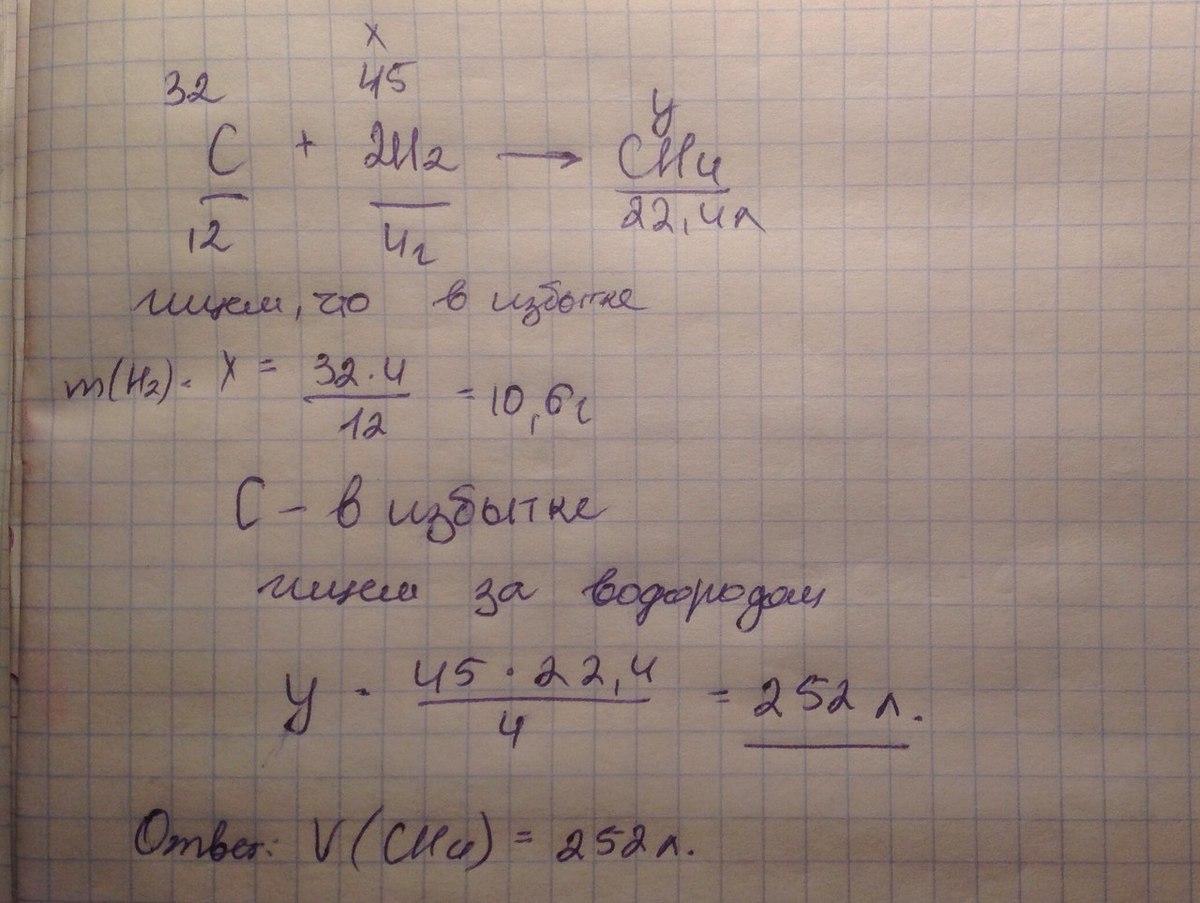 x
32 45 y
C + 2H2 → CH4
12 4г 22,4л
ищем, что в избытке
m(H2) = x = 32·4 / 12 = 10,6г
C – в избытке
ищем за водородом
y = 45·22,4 / 4 = 252 л.
Ответ: V(CH4) = 252л.